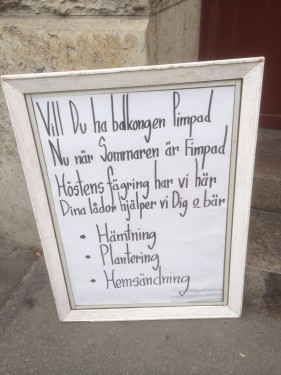 Vill Du ha balkongen Pimpad
Nu när Sommaren är Fimpad
Höstens fägring har vi här
Dina lådor hjälper vi Dig o bär
• Hämtning
• Plantering
• Hemsändning